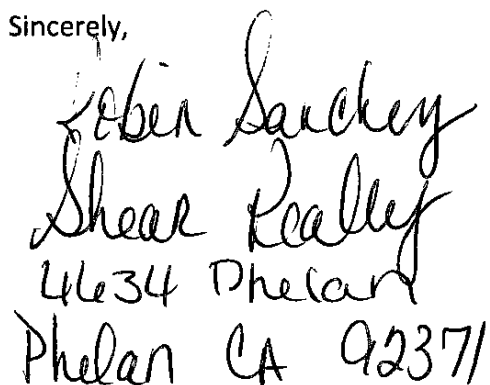 Sincerely,
Robin Sanchey
Shear Realty
4634 Phelan
Phelan CA 92371